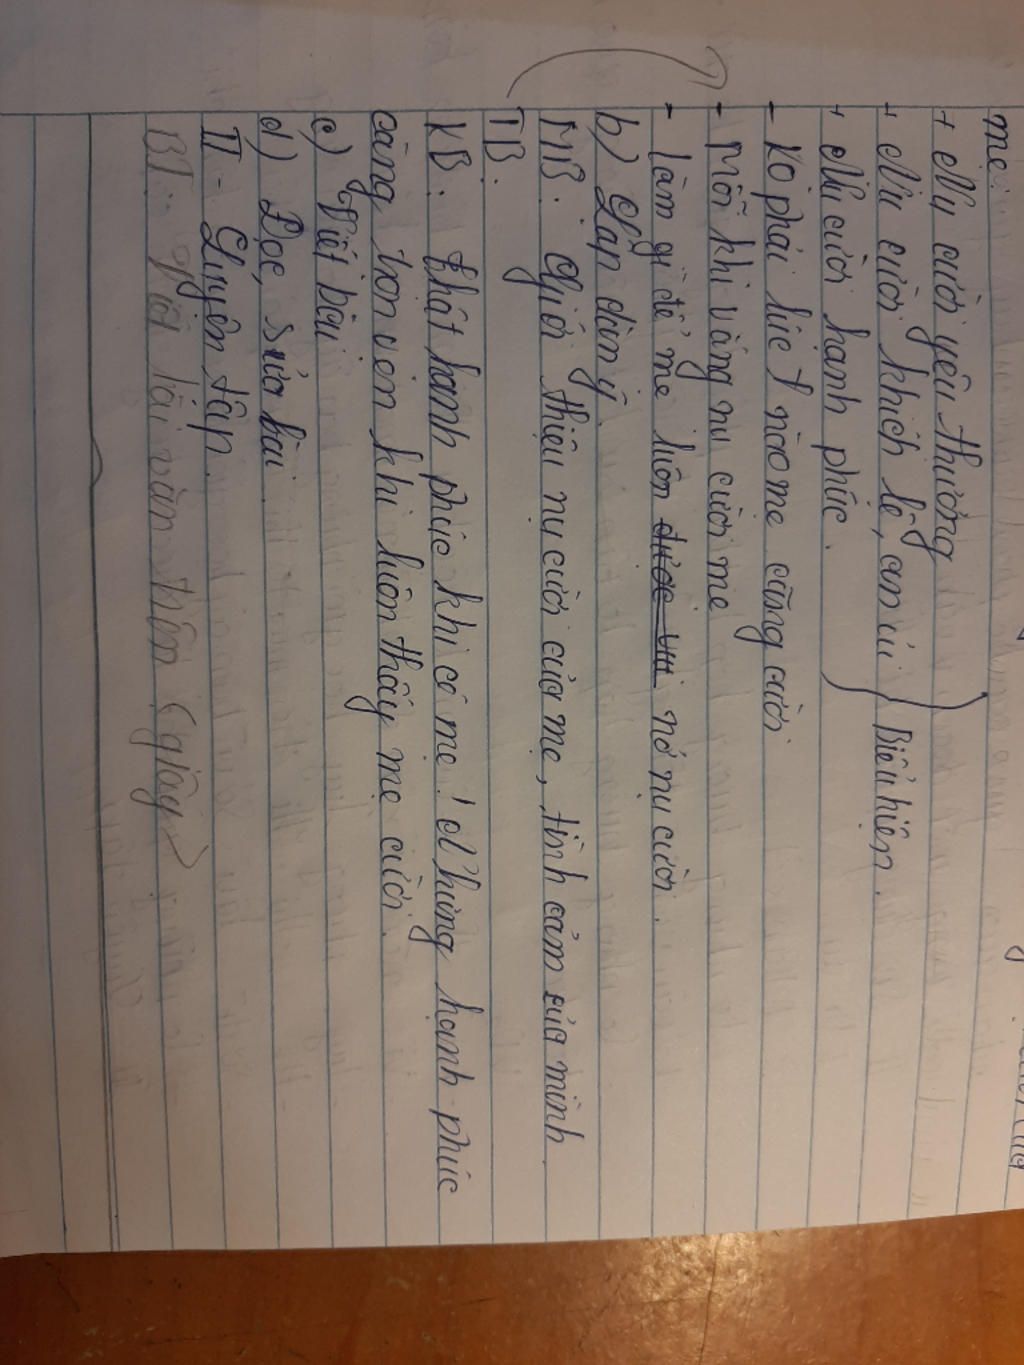 mẹ:
+ Nụ cười yêu thương
+ Nụ cười khích lệ, an ủi } Biểu hiện.
+ Nụ cười hạnh phúc.
- Ko phải lúc nào mẹ cũng cười
- Mỗi khi vắng nụ cười mẹ
- Làm gì để mẹ luôn nở nụ cười.
b) Lập dàn ý.
MB: Giới thiệu nụ cười của mẹ, tình cảm của mình
TB.
KB: Thật hạnh phúc khi có mẹ! Nhưng hạnh phúc
càng trọn vẹn khi luôn thấy mẹ cười.
c) Viết bài
d) Đọc, sửa bài
II - Luyện tập.
BT: Viết bài văn trên (giấy)